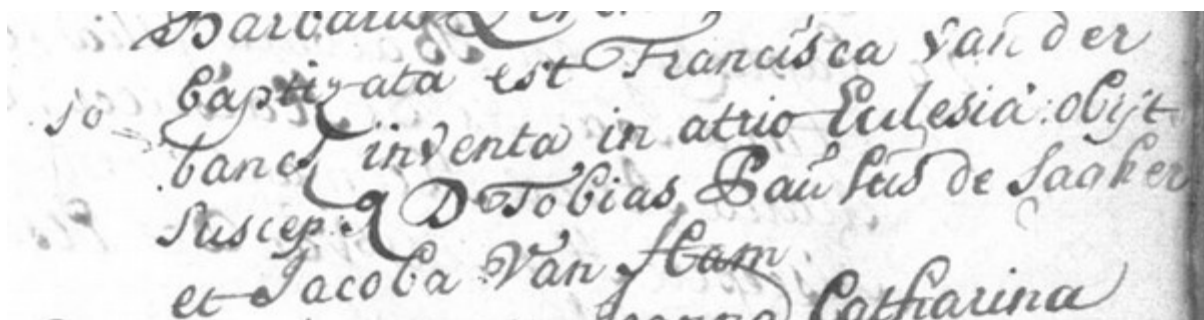 Barbara
baptizata est Francisca van der
10 banck inventa in atrio Ecclesiæ: obijt
Suscep: D Tobias Paulus de Saaker
et Jacoba Van Ham
Catharina